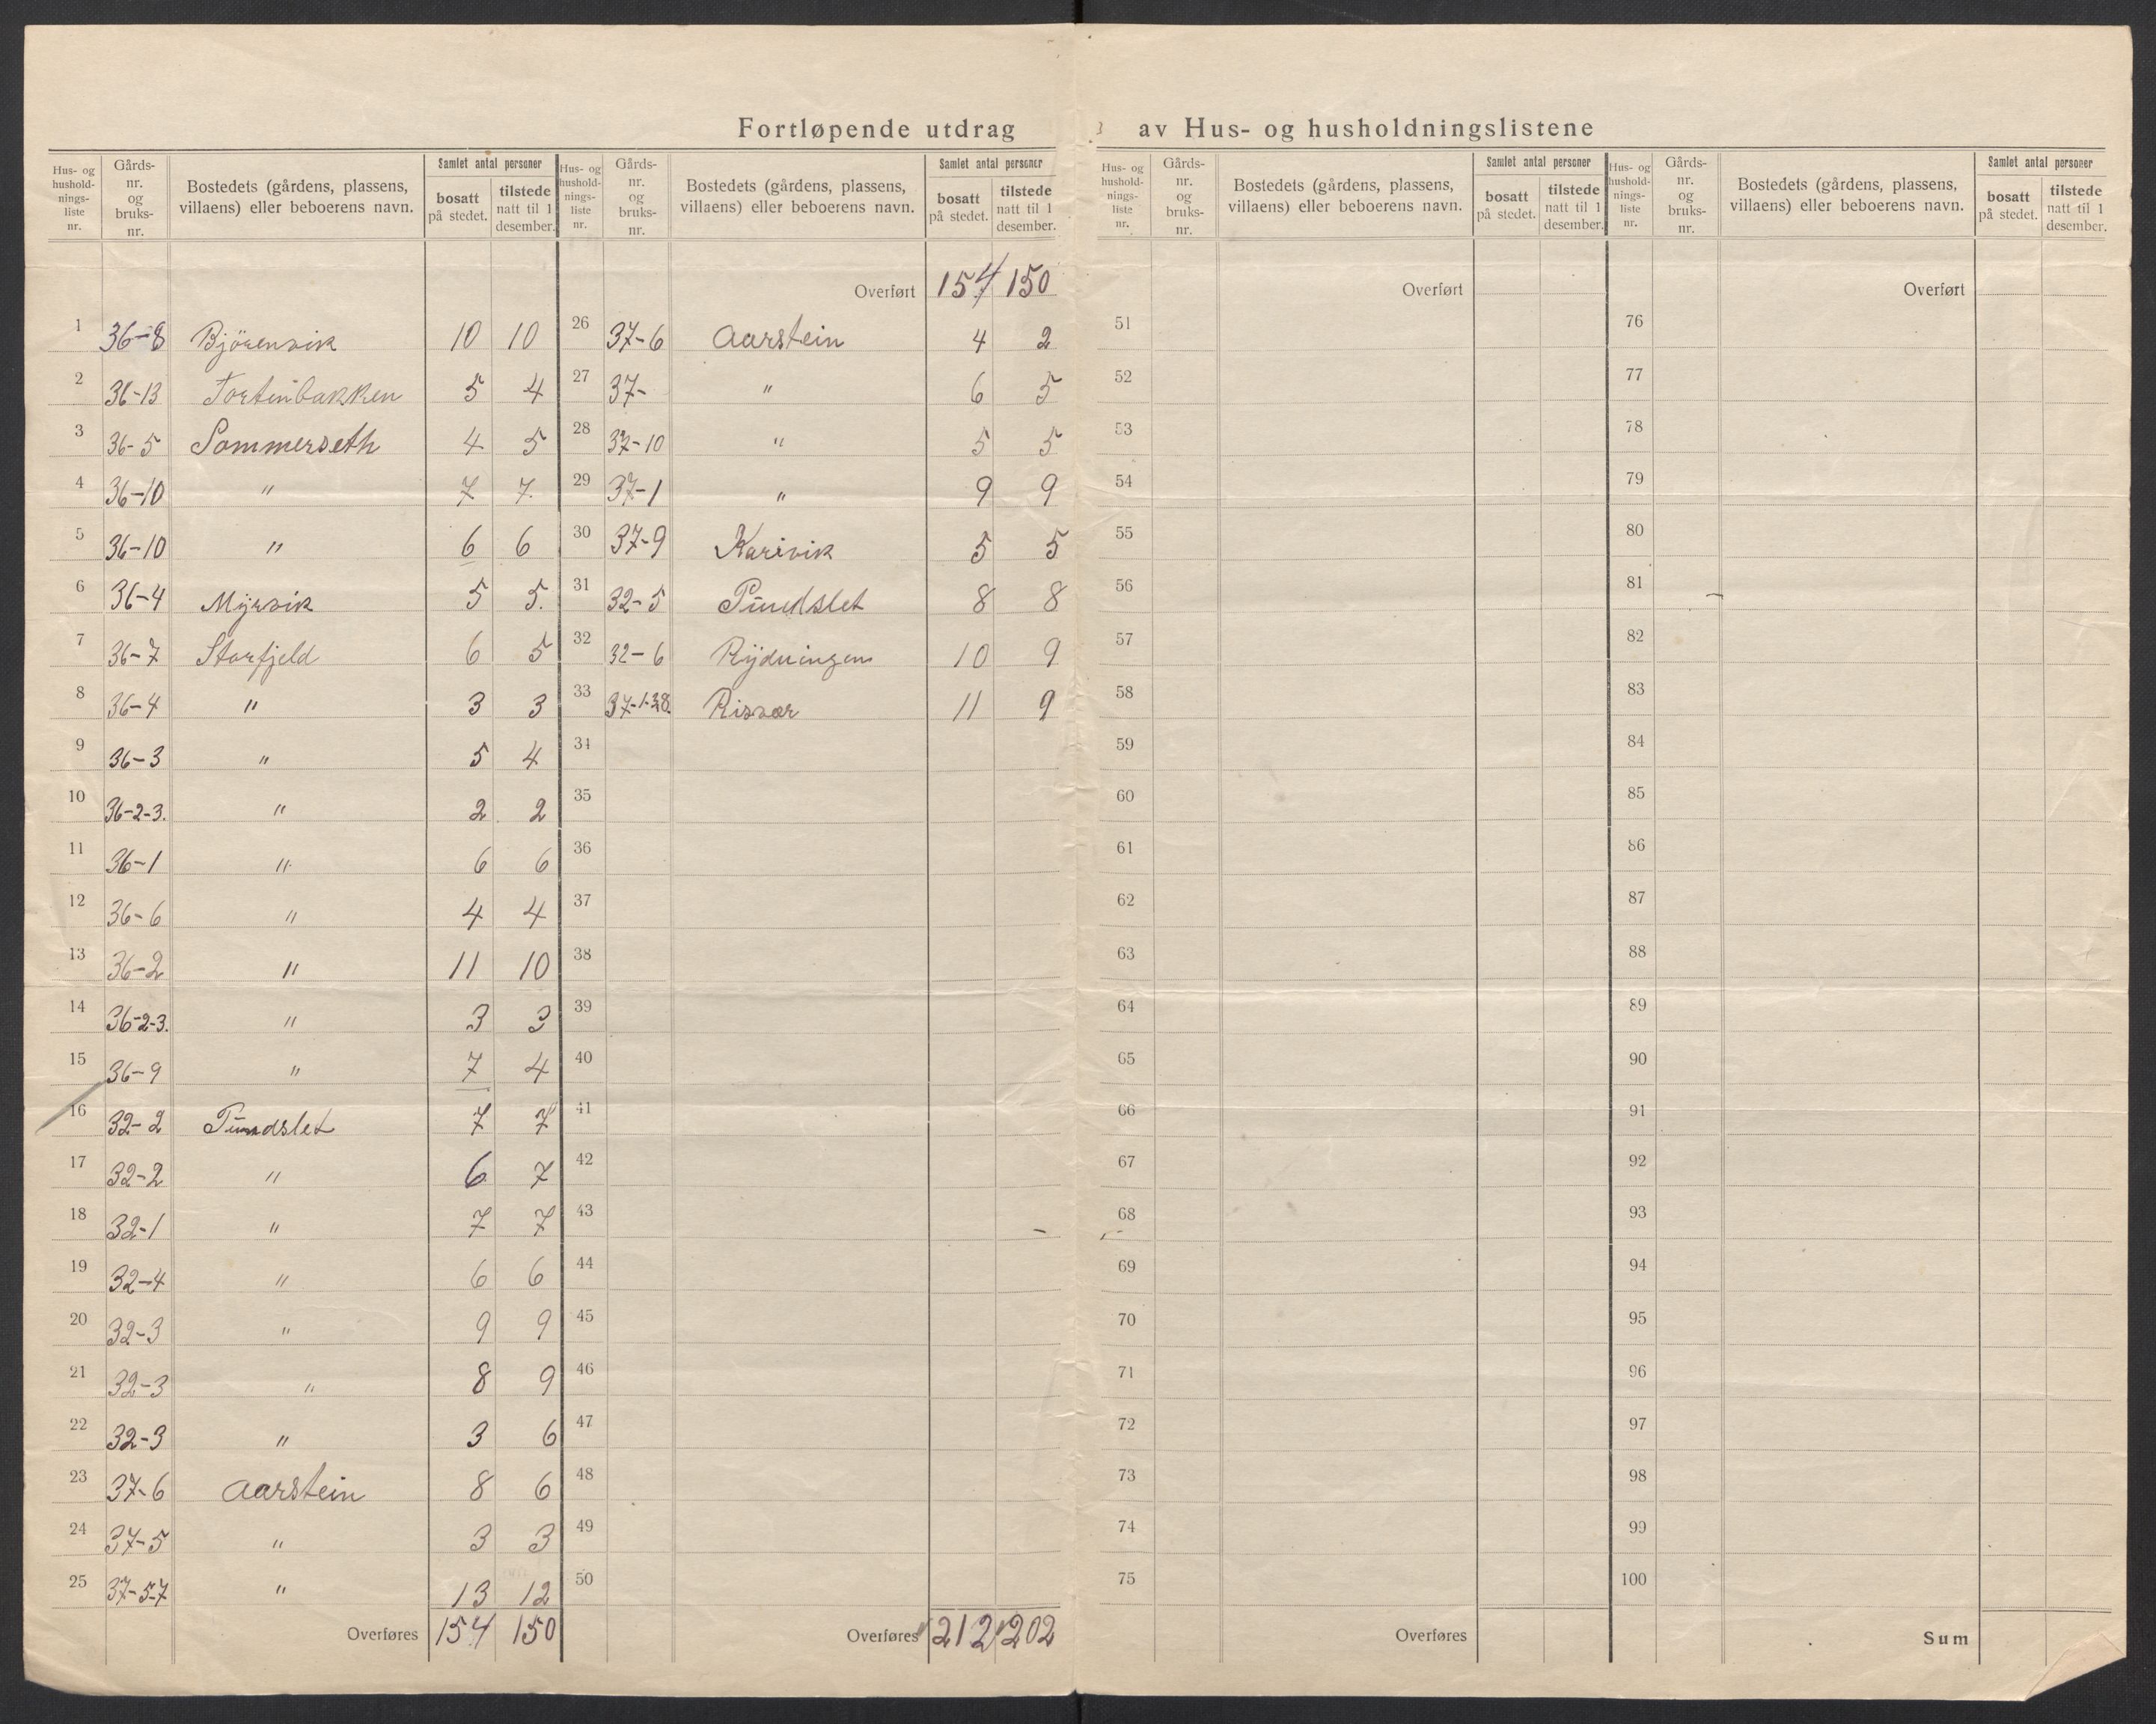 Fortløpende utdrag av Hus- og husholdningslistene
Hus- og hushold-nings-liste nr. Gårds-nr. og bruks-nr. Bostedets (gårdens, plassens, villaens) eller beboerens navn. Samlet antal personer bosatt på stedet. tilstede natt til 1 desember.
1 36-8 Bjørenvik 10 10
2 36-13 Tortenbakken 5 4
3 36-5 Sommerseth 4 5
4 36-10 " 7 7.
5 36-10 " 6 6
6 36-4 Myrvik 5 5.
7 36-7 Storfjeld 6 5
8 36-4 " 3 3
9 36-3 " 5 4
10 36-2-3. " 2 2
11 36-1 " 6 6
12 36-6 " 4 4
13 36-2 " 11 10
14 36-2-3. " 3 3
15 36-9 " 7 4
16 32-2 Pundslet 7 7
17 32-2 " 6 7
18 32-1 " 7 7
19 32-4 " 6 6
20 32-3 " 9 9
21 32-3 " 8 9
22 32-3 " 3 6
23 37-6 Aarstein 8 6
24 37-5 " 3 3
25 37-5-7 " 13 12
Overføres 154 150
Hus- og hushold-nings-liste nr. Gårds-nr. og bruks-nr. Bostedets (gårdens, plassens, villaens) eller beboerens navn. Samlet antal personer bosatt på stedet. tilstede natt til 1 desember.
Overført 154 150
26 37-6 Aarstein 4 2
27 37- " 6 5
28 37-10 " 5 5
29 37-1 " 9 9
30 37-9 Karivik 5 5
31 32-5 Pundslet 8 8
32 32-6 Rydningen 10 9
33 Risvær 11 9
34
35
36
37
38
39
40
41
42
43
44
45
46
47
48
49
50
Overføres 212 202
Hus- og hushold-nings-liste nr. Gårds-nr. og bruks-nr. Bostedets (gårdens, plassens, villaens) eller beboerens navn. Samlet antal personer bosatt på stedet. tilstede natt til 1 desember.
Overført
51
52
53
54
55
56
57
58
59
60
61
62
63
64
65
66
67
68
69
70
71
72
73
74
75
Overføres
Hus- og hushold-nings-liste nr. Gårds-nr. og bruks-nr. Bostedets (gårdens, plassens, villaens) eller beboerens navn. Samlet antal personer bosatt på stedet. tilstede natt til 1 desember.
Overført
76
77
78
79
80
81
82
83
84
85
86
87
88
89
90
91
92
93
94
95
96
97
98
99
100
Sum